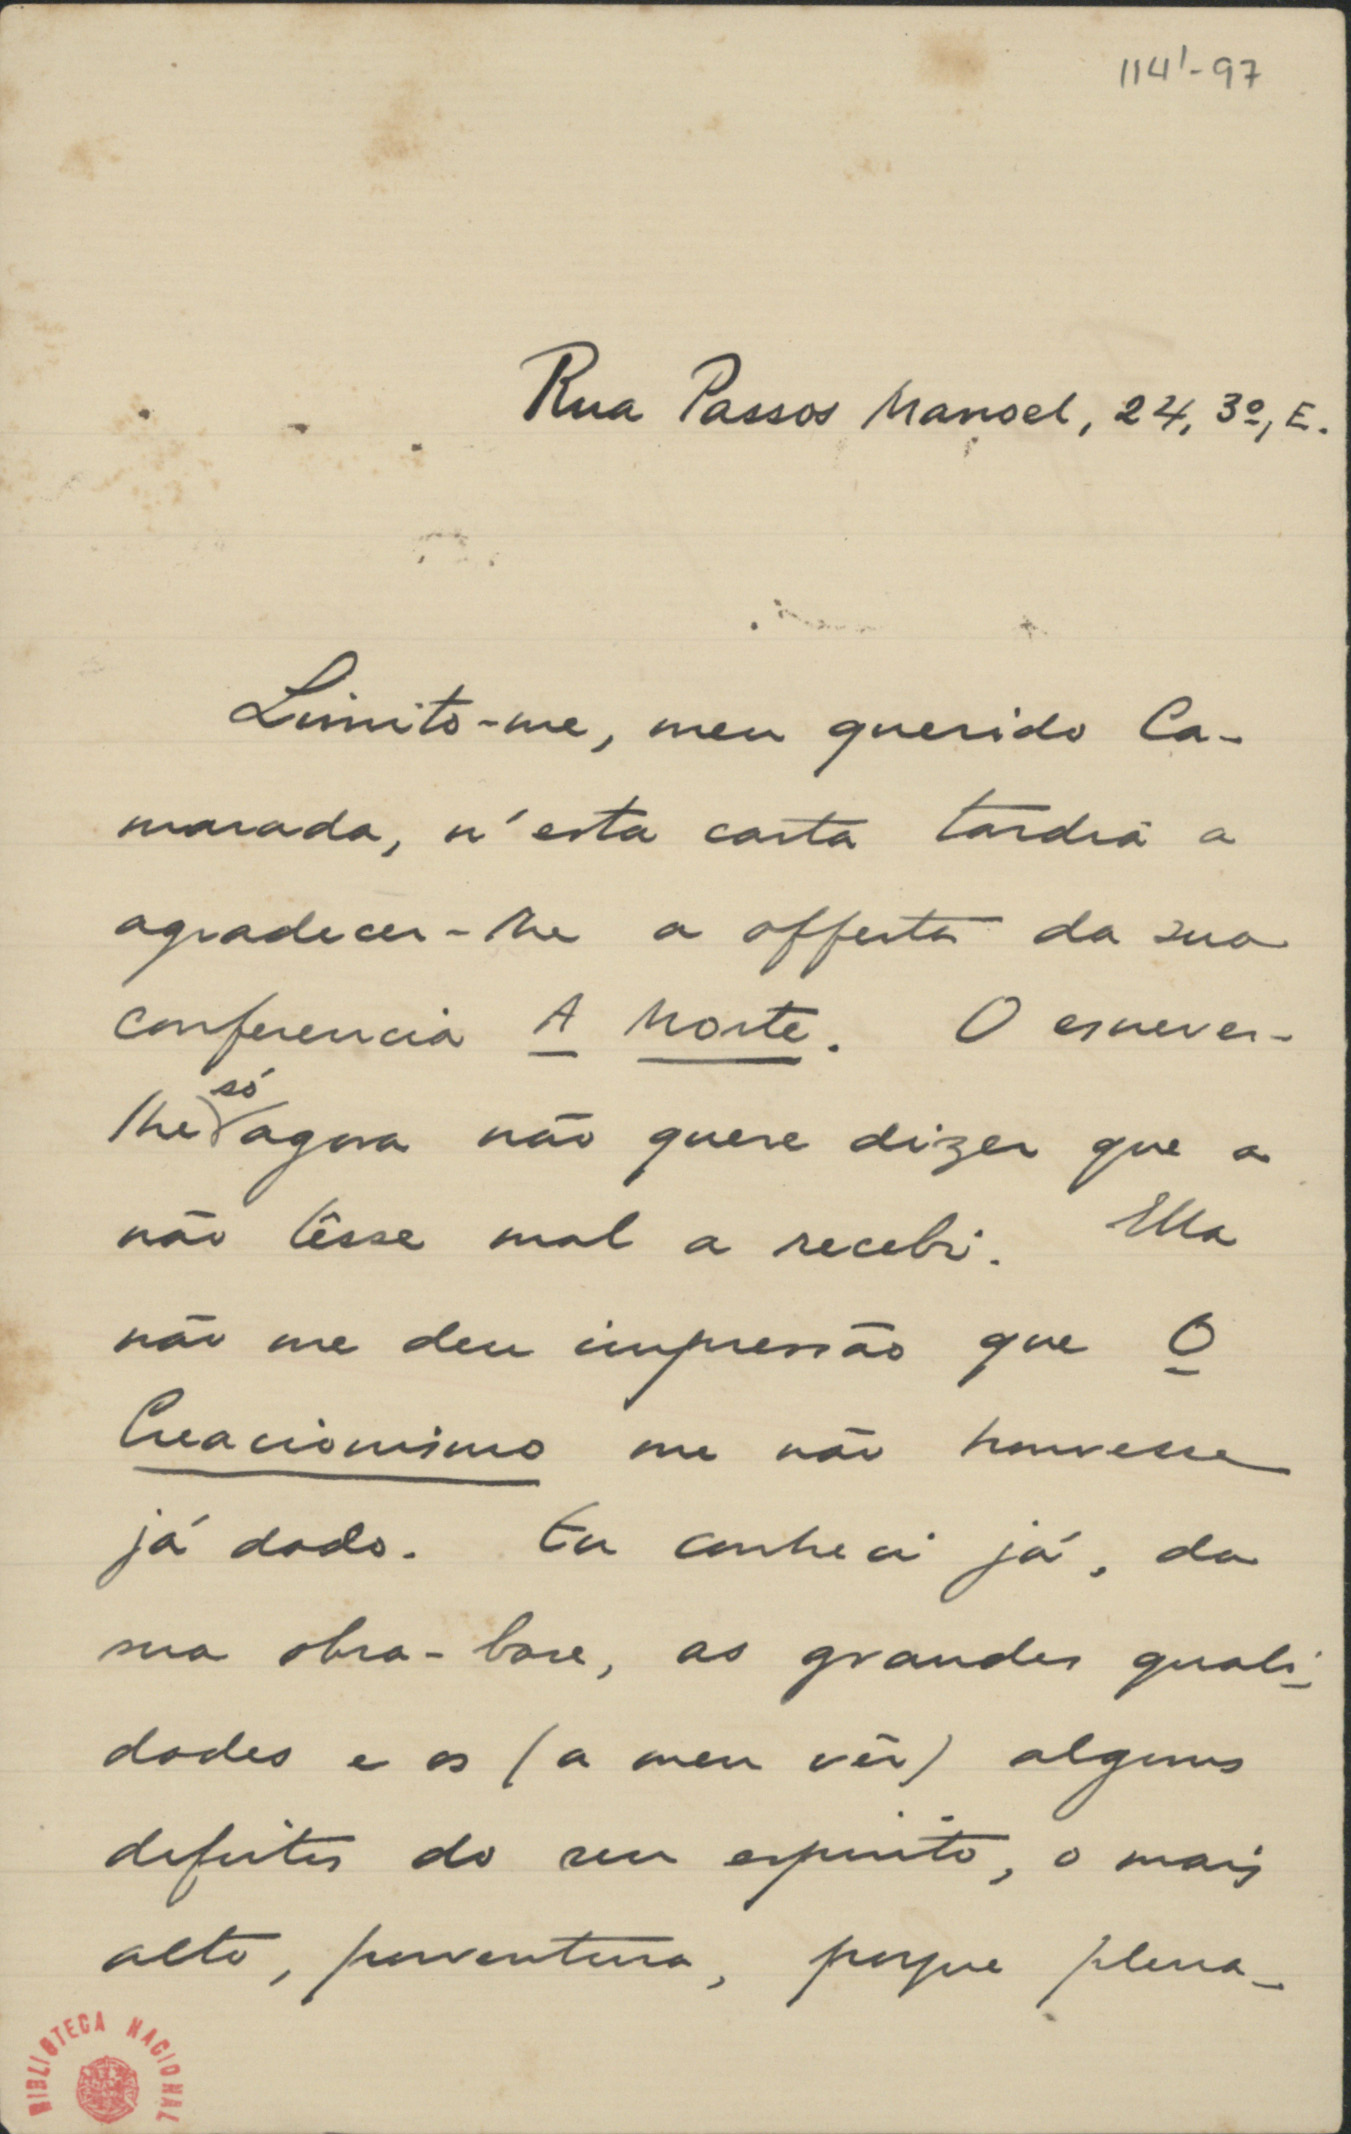 114¹-97
Rua Passos Manoel, 24, 3º, E.
Limito-me, meu querido Ca-
marada, n'esta carta tardia a
agradecer-lhe a offerta da sua
conferencia A Morte. O escrever-
lhe só agora não quere dizer que a
não lêsse mal a recebi. Ella
não me deu impressão que O
Creacionismo me não houvesse
já dado. Eu conheci já, da
sua obra-base, as grandes quali-
dades e os (a meu vêr) alguns
defeitos do seu espirito, o mais
alto, porventura, porque plena-
BIBLIOTECA NACIONAL